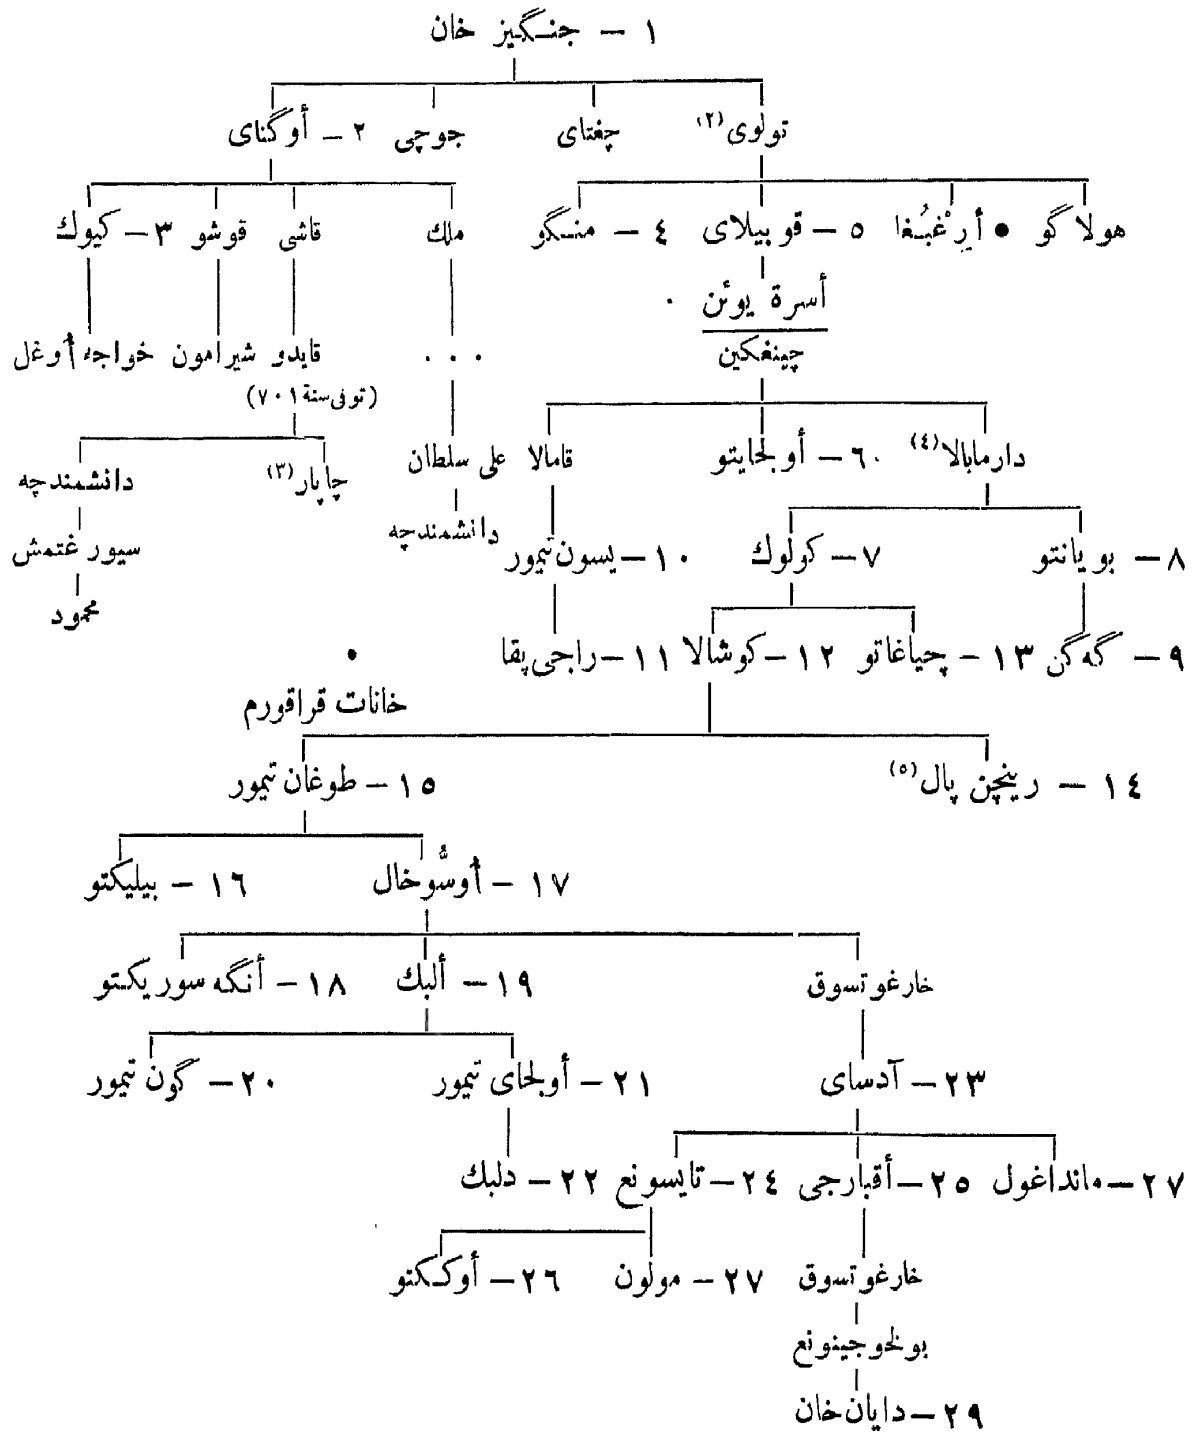 ١ – جنـگيز خان
تولوى (٢) چغتاى جوچى ٢ – أوگتاى
هولاگو • أرِغْبُغا ٥ – قوبيلاى ٤ – منـگو ملك قاشى قوشو ٣ – كيوك
أسرة يوئن .
چينغكين
. . . قايدو شيرامون خواجه أوغل
(توفى سنة ٧٠١)
دارمابالا (٤) ٦ – أولجايتو قامالا على سلطان چاپار (٣) دانشمندچه
دانشمندچه
٨ – بويانتو ٧ – كولوك ١٠ – يسون تيمور سيورغتمش
محمود
٩ – گه‌گن ١٣ – چياغاتو ١٢ – كوشالا ١١ – راجى پقا
خانات قراقورم
١٤ – رينچن پال (٥) ١٥ – طوغان تيمور
١٧ – أوسُّوخال ١٦ – بيليكتو
خارغوتسوق ١٩ – ألبك ١٨ – أنگه سوريكتو
٢٣ – آدساى ٢١ – أولجاى تيمور ٢٠ – گون تيمور
٢٧ – مانداغول ٢٥ – أقبارجى ٢٤ – تايسونع ٢٢ – دلبك
خارغوتسوق ٢٧ – مولون ٢٦ – أوكـكتو
بولخوجينونع
٢٩ – دايان خان